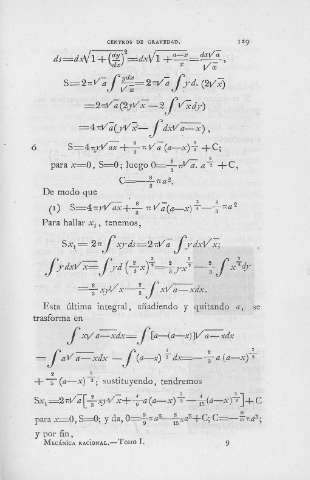 CENTROS DE GRAVEDAD. 129
ds=dx√1+(dy/dx)²=dx√1+(a−x)/x=dx√a/√x,
S=2π√a∫ydx/√x=2π√a∫yd.(2√x)
=2π√a(2y√x−2∫√xdy)
=4π√a(y√x−∫dx√a−x),
ó S=4πy√ax+8/3π√a(a−x)^3/2+C;
para x=0, S=0; luego 0=8/3π√a. a^3/2+C,
C=−8/3πa².
De modo que
(1) S=4πy√ax+8/3π√a(a−x)^3/2−8/3πa²
Para hallar x₁, tenemos,
Sx₁=2π∫xyds=2π√a∫ydx√x;
∫ydx√x=∫yd(2/3x)^3/2=2/3yx^3/2−2/3∫x^3/2dy
=2/3xy√x−2/3∫x√a−xdx.
Esta última integral, añadiendo y quitando a, se
trasforma en
∫x√a−xdx=∫[a−(a−x)]√a−xdx
=∫a√a−xdx−∫(a−x)^3/2dx=−2/3a(a−x)^3/2
+2/5(a−x)^5/2; sustituyendo, tendremos
Sx₁=2π√a[2/3xy√x+4/9a(a−x)^3/2−4/15(a−x)^5/2]+C
para x=0, S=0; y da, 0=8/9πa³−8/15πa³+C; C=− πa³;
y por fin,
MECÁNICA RACIONAL.—TOMO I. 9